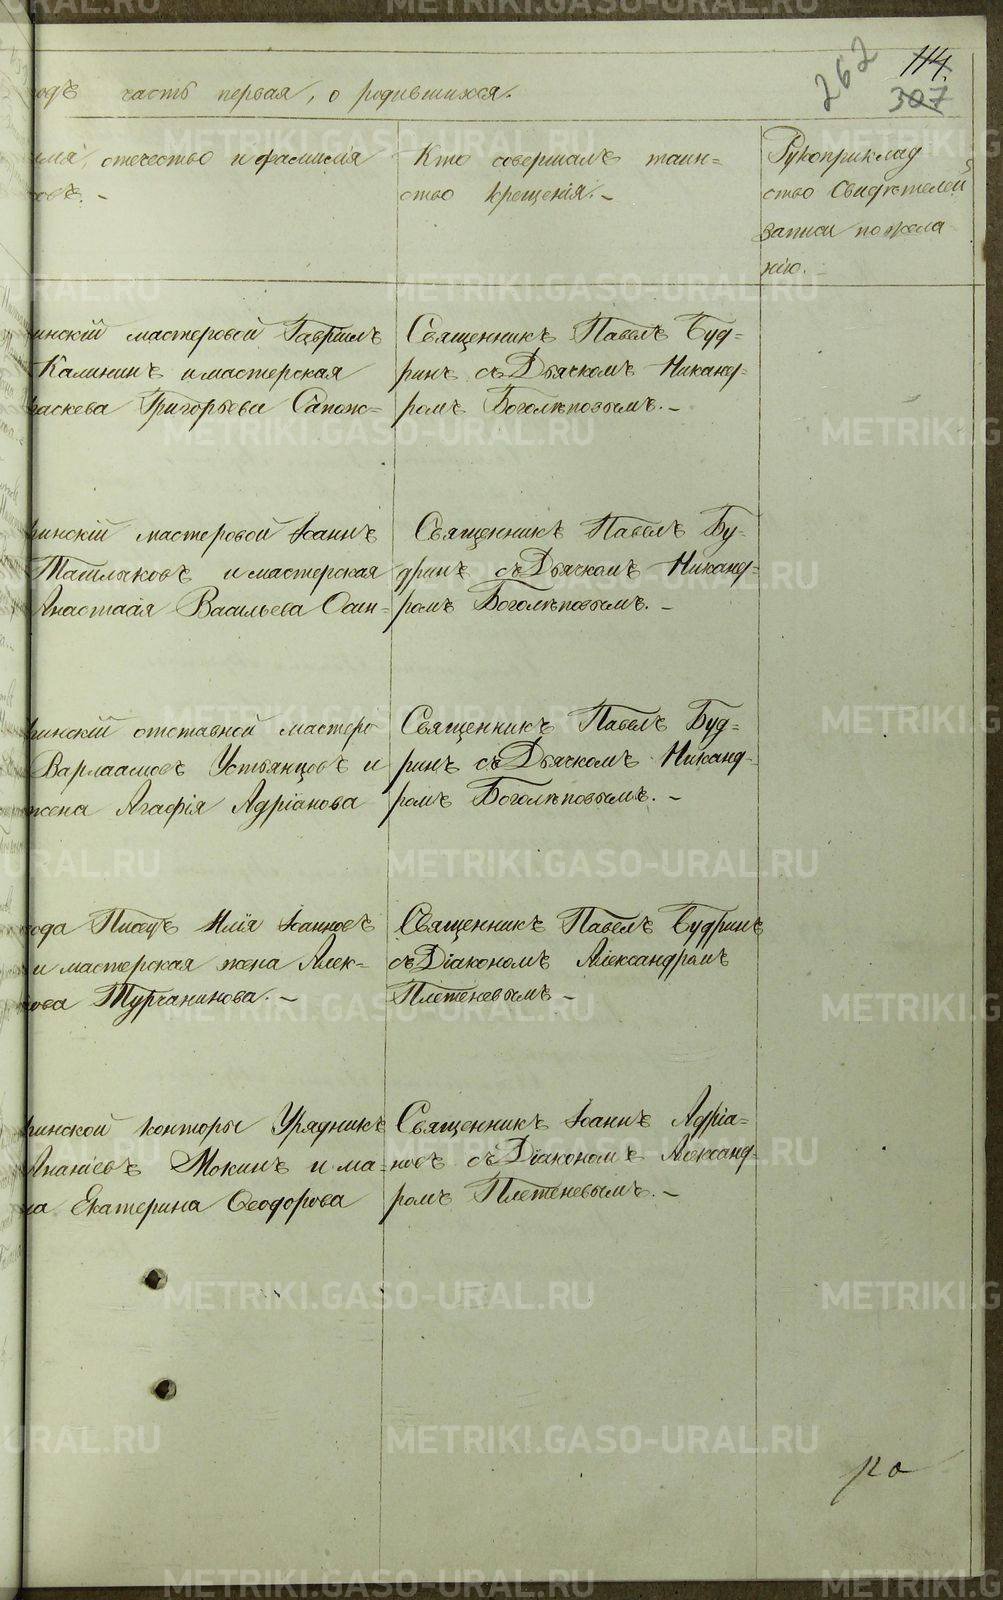 262
114.
307
одъ часть первая, о родившихся.
имя, отечество и фамилія
овъ. -
Кто совершалъ таин=
ство крещенія. -
Рукоприклад
ство свидѣтелей
записи по жела
нію.
инскій мастеровой Гавріилъ
Калининъ и мастерская
раскева Григорьева Сапож=
Священникъ Павелъ Буд=
ринъ съ Дьячкомъ Никанд=
ромъ Боголѣповымъ. -
ринскій мастеровой Іоаннъ
и мастерская
Анастасія Васильева Осин=
Священникъ Павелъ Бу=
дринъ съ Дьячкомъ Никанд=
ромъ Боголѣповымъ. -
ринскій отставной мастеро
Варлаамовъ Устьянцовъ и
жена Агафія Адріанова
Священникъ Павелъ Буд=
ринъ съ Дьячкомъ Никанд=
ромъ Боголѣповымъ. -
рода Писецъ Илія Іоанновъ
и мастерская жена Алек=
ова Турчанинова. -
Священникъ Павелъ Будринъ
съ Діакономъ Александромъ
Плетеневымъ -
ринской конторы Урядникъ
Ананіевъ Мокинъ и ма=
на Екатерина Ѳеодорова
Священникъ Іоаннъ Адріа=
новъ съ Діакономъ Александ=
ромъ Плетеневымъ. -
ро
METRIKI.GASO-URAL.RU